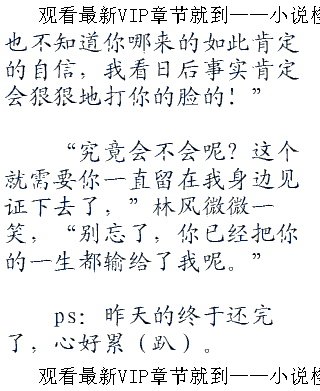 观看最新VIP章节就到——小说
也不知道你哪来的如此肯定
的自信，我看日后事实肯定
会狠狠地打你的脸的！”
“究竟会不会呢？这个
就需要你一直留在我身边见
证下去了，”林风微微一
笑，“别忘了，你已经把你
的一生都输给了我呢。”
ps：昨天的终于还完
了，心好累（趴）。
观看最新VIP章节就到——小说